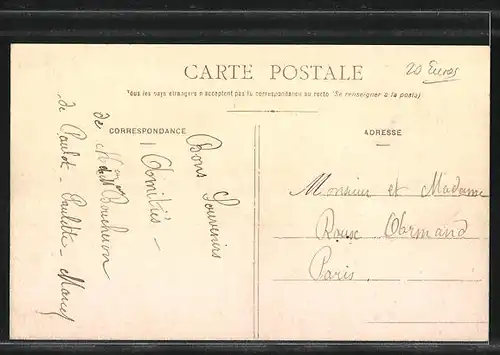 CARTE POSTALE
20 Euros
Tous les pays étrangers n'acceptent pas la correspondance au recto (Se renseigner à la poste)
CORRESPONDANCE
Bons Souvenirs
Amitiés -
de
de Paulot - Paulette - Marcel
ADRESSE
Monsieur et Madame
Roux Armand
Paris.